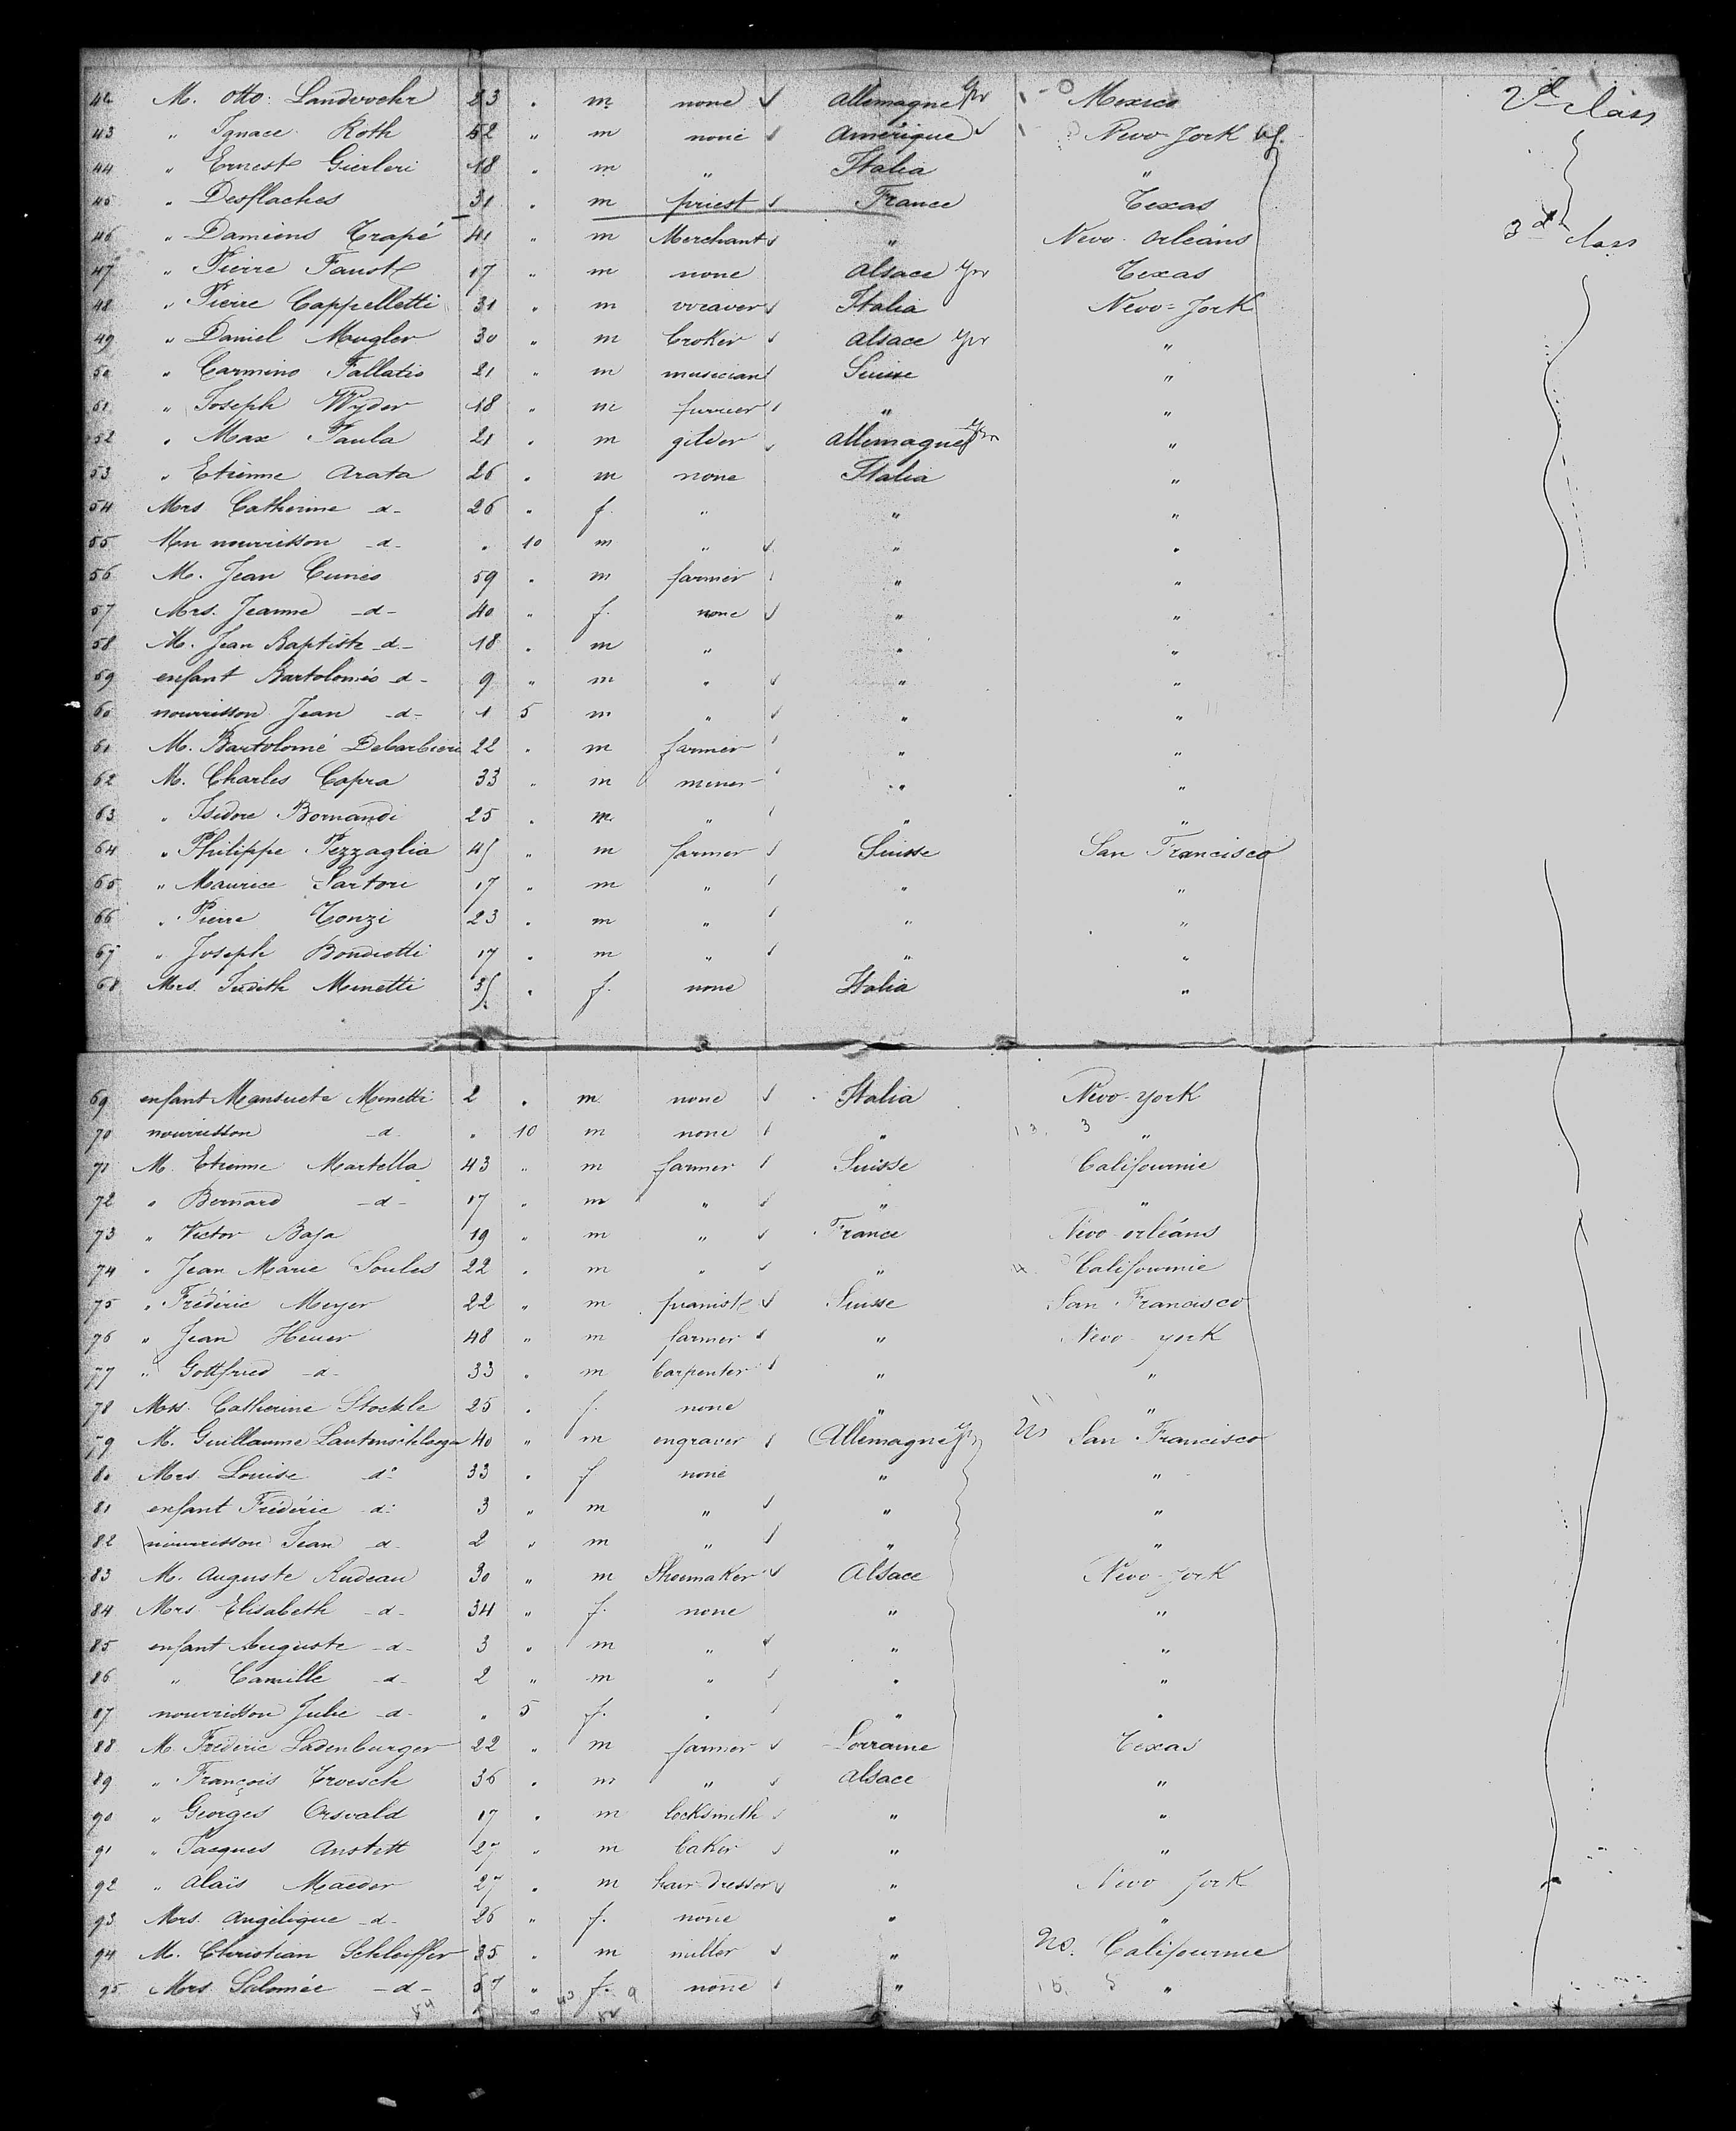 42 M. Otto Landwoehr 23 " m none Allemagne Gr Mexico 2d class
43 " Ignace Roth 52 " m none Amérique New-York
44 " Ernest Gierleri 18 " m " Italia "
45 " Desflaches 31 " m priest France Texas
46 " Damiens Trapé 41 " m Merchant " New-Orléans 3d class
47 " Pierre Faust 17 " m none Alsace Gr Texas
48 " Pierre Cappelletti 31 " m weaver Italia New-York
49 " Daniel Mugler 30 " m broker Alsace Gr "
50 " Carmino Fallatio 21 " m musician Suisse "
51 " Joseph Wyder 18 " m furrier " "
52 " Max Paula 21 " m gilder Allemagne Gr "
53 " Etienne Arata 26 " m none Italia "
54 Mrs Catherine -d- 26 " f. " " "
55 nourrisson -d- " 10 m " " "
56 M. Jean Cuneo 59 " m farmer " "
57 Mrs. Jeanne -d- 40 " f. none " "
58 M. Jean Baptiste -d- 18 " m " " "
59 enfant Bartoloméo -d- 9 " m " " "
60 nourrisson Jean -d- 1 5 m " " "
61 M. Bartolomé Debarbieri 22 " m farmer " "
62 M. Charles Capra 33 " m miner " "
63 " Isidore Bornandi 25 " m " " "
64 " Philippe Pezzaglia 45 " m farmer Suisse San Francisco
65 " Maurice Sartori 17 " m " " "
66 " Pierre Tonzi 23 " m " " "
67 " Joseph Bondietti 17 " m " " "
68 Mrs. Judith Minetti 35 " f. none Italia "
69 enfant Mansuete Minetti 2 " m none Italia New-york
70 nourrisson -d- " 10 m none " "
71 M. Etienne Martella 43 " m farmer Suisse Califournie
72 " Bernard -d- 17 " m " " "
73 " Victor Baja 19 " m " France New-orléans
74 " Jean Marie Soules 22 " m " " Califournie
75 " Fréderic Meyer 22 " m pianist Suisse San Francisco
76 " Jean Heuer 48 " m farmer " New-york
77 " Gottfried -d- 33 " m Carpenter " "
78 Mrs. Catherine Stockle 25 " f. none " "
79 M. Guillaume Lautenschlager 40 " m engraver Allemagne Gr San Francisco
80 Mrs. Louise do 33 " f none " "
81 enfant Fréderic -d- 3 " m " " "
82 nourrisson Jean -d- 2 " m " " "
83 M. Auguste Rudeau 30 " m Shoemaker Alsace New-York
84 Mrs. Elisabeth -d- 34 " f. none " "
85 enfant Auguste -d- 3 " m " " "
86 " Camille -d- 2 " m " " "
87 nourrisson Julie -d- " 5 f. " " "
88 M. Fréderic Ladenburger 22 " m farmer Lorraine Texas
89 " François Troesch 36 " m " Alsace "
90 " Georges Oswald 17 " m locksmith " "
91 " Jacques Anstett 27 " m baker " "
92 " Alois Maeder 27 " m hair-dresser " New-York
93 Mrs. Angélique -d- 26 " f. none " "
94 M. Christian Schleiffer 35 " m miller " Califournie
95 Mrs. Salomée -d- 57 " f. none " "